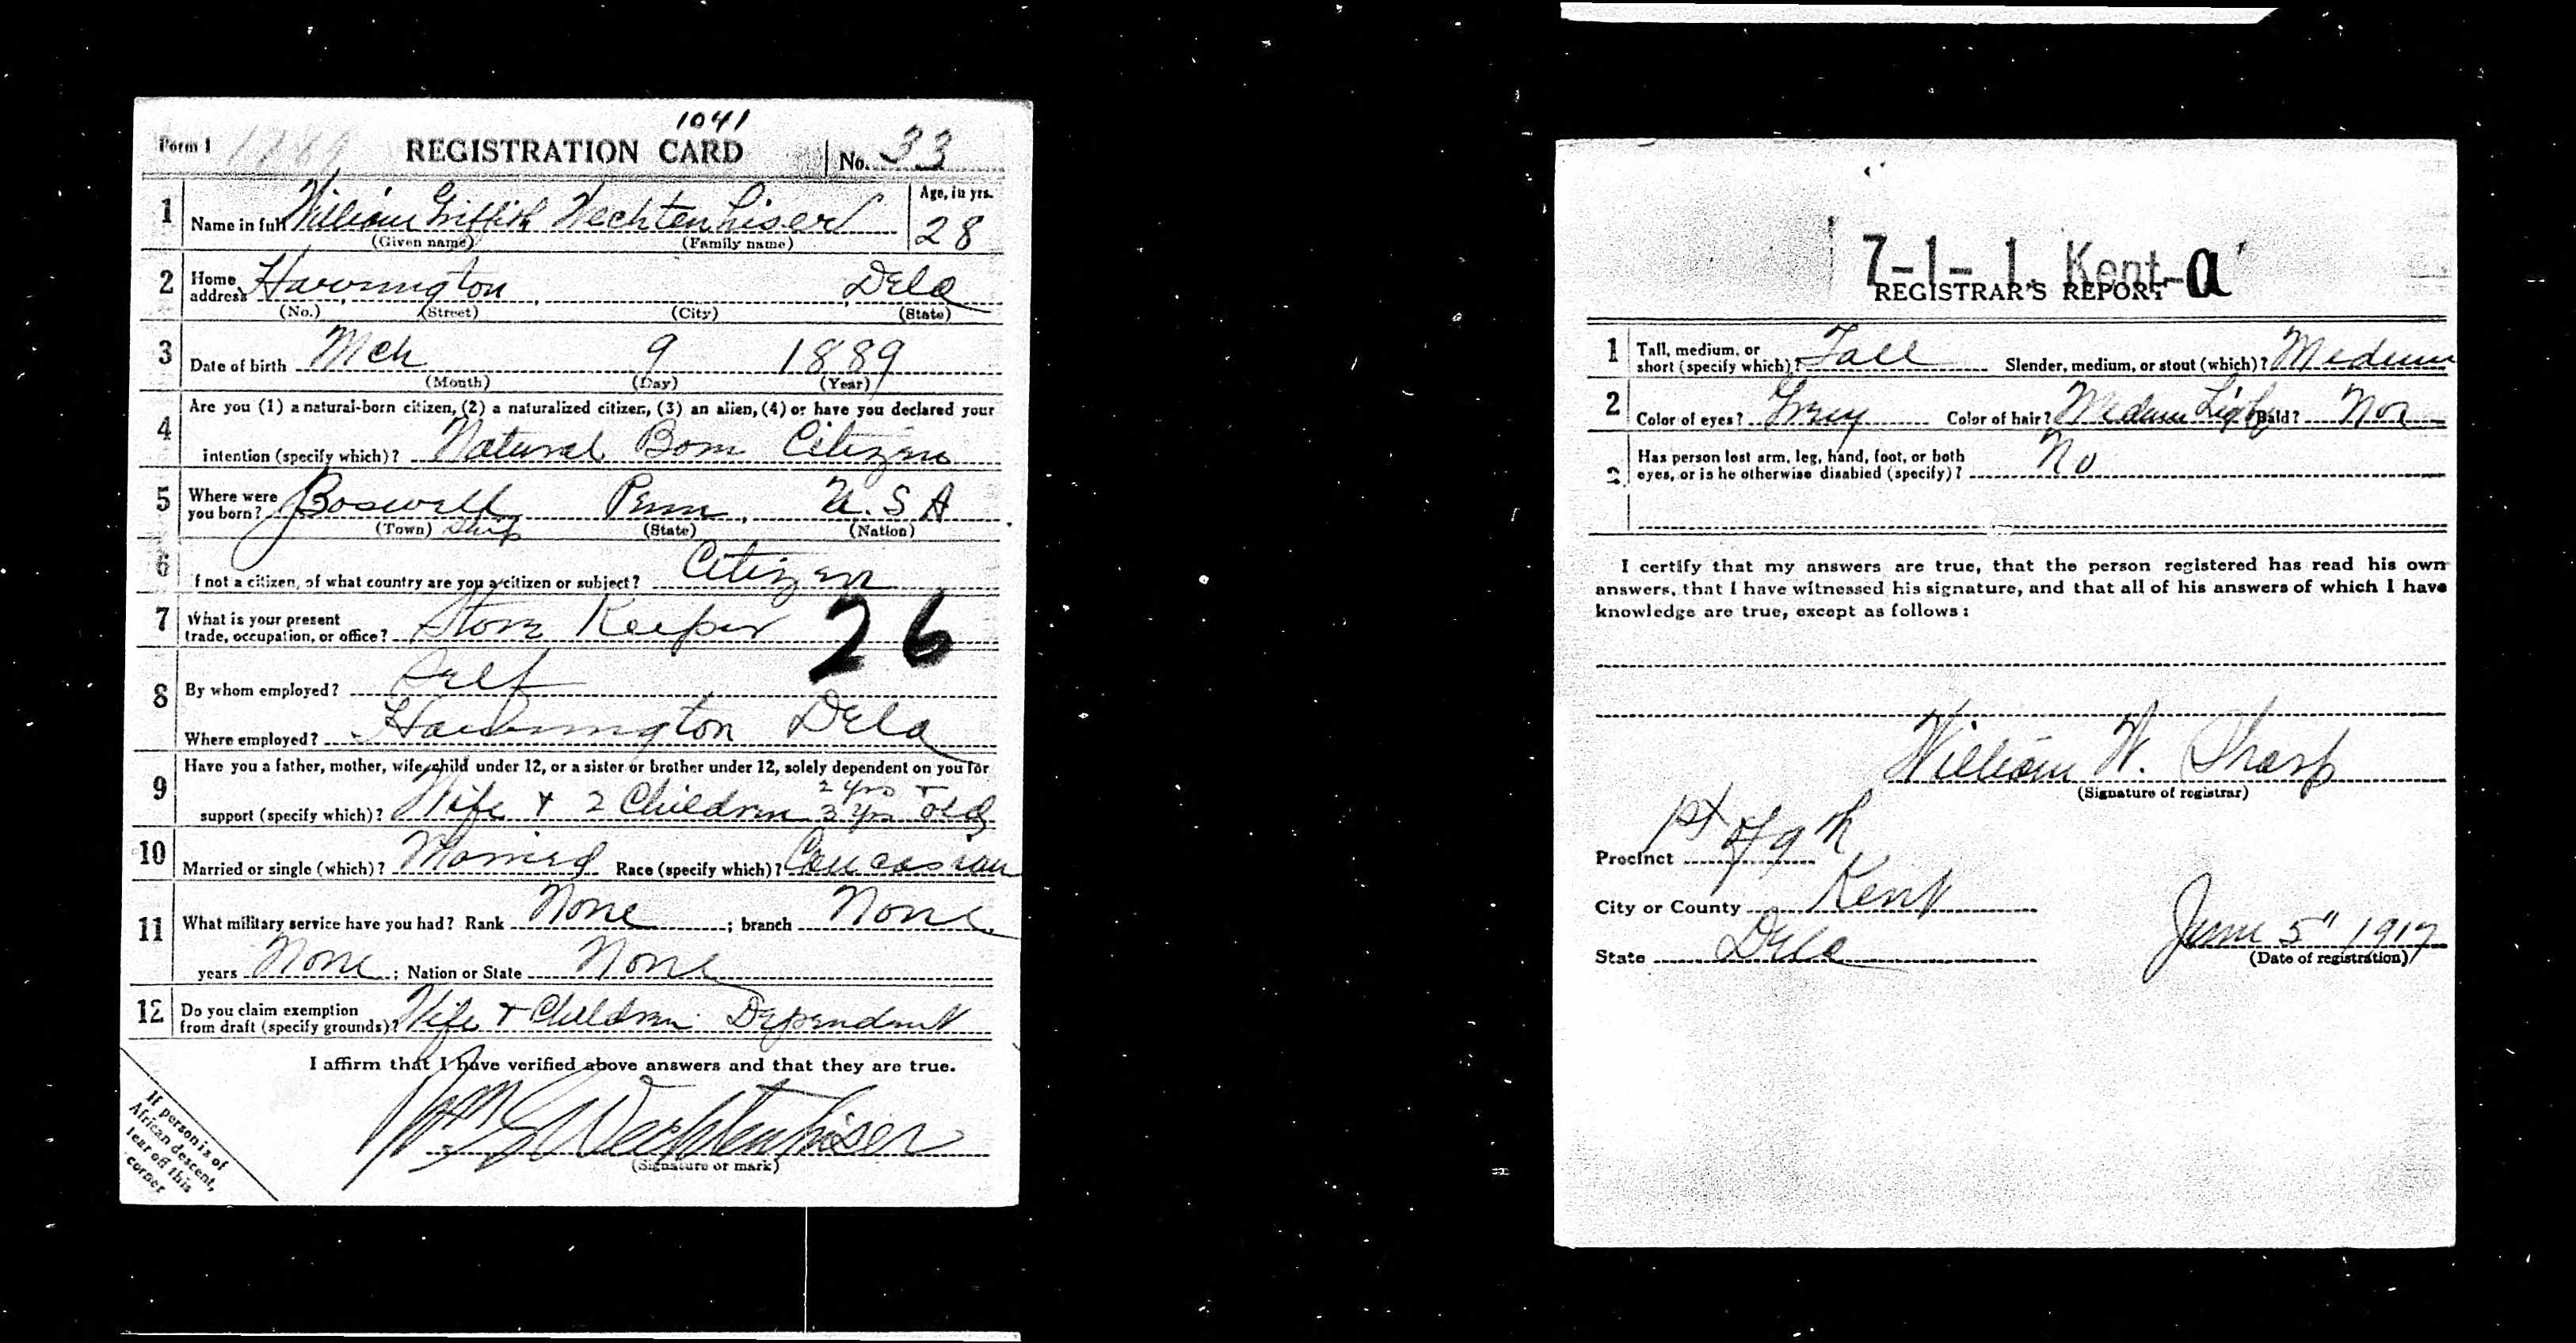 1041
Form 1 1789 REGISTRATION CARD No. 33
1 Name in full William Griffith Wechtenhiser Age, in yrs. 28
(Given name) (Family name)
2 Home address Harrington Dela
(No.) (Street) (City) (State)
3 Date of birth Mch 9 1889
(Month) (Day) (Year)
4 Are you (1) a natural-born citizen, (2) a naturalized citizen, (3) an alien, (4) or have you declared your
intention (specify which)? Natural Born Citizen
5 Where were you born? Boswell Penn, U.S A
(Town) ship (State) (Nation)
6 If not a citizen, of what country are you a citizen or subject? Citizen
7 What is your present trade, occupation, or office? Store Keeper 26
8 By whom employed? Self
Where employed? Harrington Dela
9 Have you a father, mother, wife, child under 12, or a sister or brother under 12, solely dependent on you for
2 yrs +
support (specify which)? Wife + 2 Children 3 yrs old
10 Married or single (which)? Married Race (specify which)? Caucasian
11 What military service have you had? Rank None ; branch None
years None ; Nation or State None
12 Do you claim exemption from draft (specify grounds)? Wife + Children Dependent
I affirm that I have verified above answers and that they are true.
Wm G Wechtenhiser
(Signature or mark)
If person is of
African descent,
tear off this
corner
7-1-1. Kent-a
REGISTRAR'S REPORT
1 Tall, medium, or short (specify which)? Tall Slender, medium, or stout (which)? Medium
2 Color of eyes? Grey Color of hair? Medium Light Bald? Non
3 Has person lost arm, leg, hand, foot, or both
eyes, or is he otherwise disabled (specify)? No
I certify that my answers are true, that the person registered has read his own
answers, that I have witnessed his signature, and that all of his answers of which I have
knowledge are true, except as follows:
William W. Sharp
(Signature of registrar)
Precinct 1st of 9th
City or County Kent
State Dela
June 5" 1917
(Date of registration)